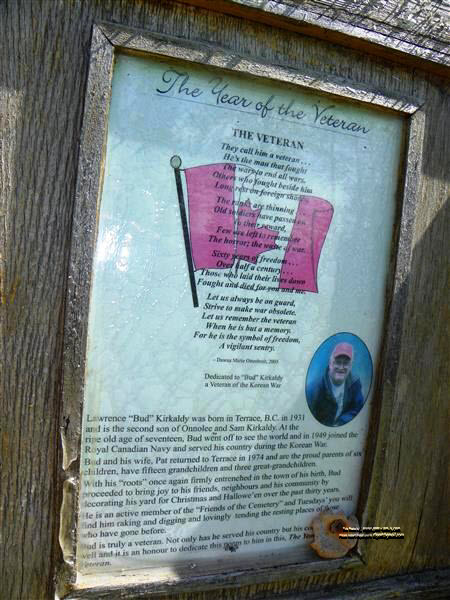 The Year of the Veteran
THE VETERAN
They call him a veteran . . .
He's the man that fought
The wars to end all wars,
Others who fought beside him
Long rest on foreign shores.
The ranks are thinning . . .
Old soldiers have passed on
To their reward,
Few are left to remember
The horror; the waste of war.
Sixty years of freedom . . .
Over half a century . . .
Those who laid their lives down
Fought and died for you and me.
Let us always be on guard,
Strive to make war obsolete.
Let us remember the veteran
When he is but a memory.
For he is the symbol of freedom,
A vigilant sentry.
Dedicated to "Bud" Kirkaldy
a Veteran of the Korean War
Lawrence "Bud" Kirkaldy was born in Terrace, B.C. in 1931
and is the second son of Onnolee and Sam Kirkaldy. At the
ripe old age of seventeen, Bud went off to see the world and in 1949 joined the
Royal Canadian Navy and served his country during the Korean War.
Bud and his wife, Pat returned to Terrace in 1974 and are the proud parents of six
children, have fifteen grandchildren and three great-grandchildren.
With his "roots" once again firmly entrenched in the town of his birth, Bud
proceeded to bring joy to his friends, neighbours and his community by
decorating his yard for Christmas and Hallowe'en over the past thirty years.
He is an active member of the "Friends of the Cemetery" and Tuesdays' you will
find him raking and digging and lovingly tending the resting places of those
who have gone before.
Bud is truly a veteran. Not only has he served his country but his
well and it is an honour to dedicate this poem to him in this, The Year
Veteran.